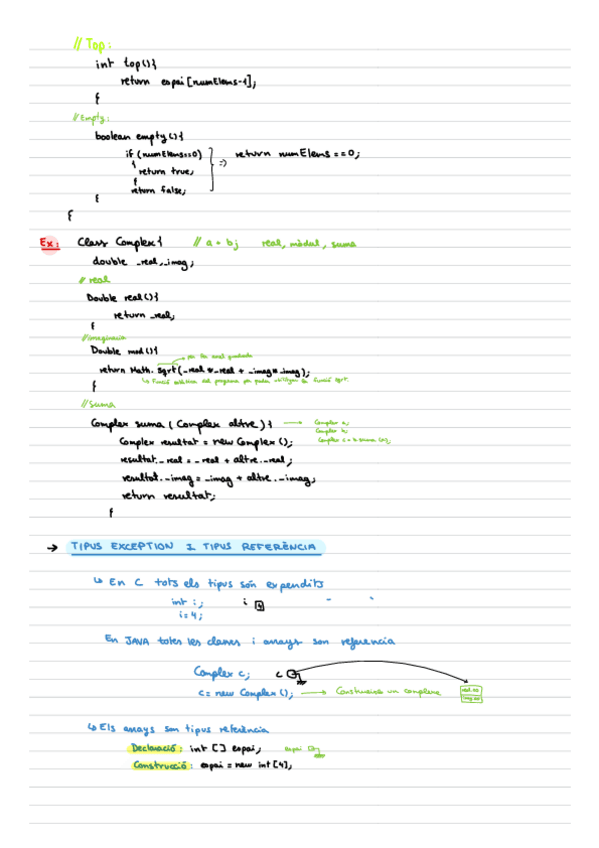 // Top:
int top(){
return espai[numElems-1];
}
// Empty:
boolean empty(){
if (numElems==0) => return numElems==0;
{
return true;
}
return false;
}
}
Ex: Class Complex{ // a + bj real, mòdul, suma
double _real,_imag;
// real
Double real(){
return _real;
}
// imaginaria
Double mod(){
per fer arrel quadrada
return Math.sqrt(_real*_real + _imag*_imag);
↳ Funció estàtica del programa per poder utilitzar la funció sqrt.
}
// Suma
Complex suma (Complex altre){ → Complex a;
Complex b;
Complex resultat = new Complex();
resultat._real = _real + altre._real;
resultat._imag = _imag + altre._imag;
return resultat;
}
→ TIPUS EXCEPTION I TIPUS REFERÈNCIA
↳ En C tots els tipus són expandits
int i; i 4
i=4;
En JAVA totes les classes i arrays son referencia
Complex c; c
c = new Complex(); → Construeix un complexe
↳ Els arrays son tipus referència
Declaració: int [] espai; espai
Construcció: espai = new int[4];